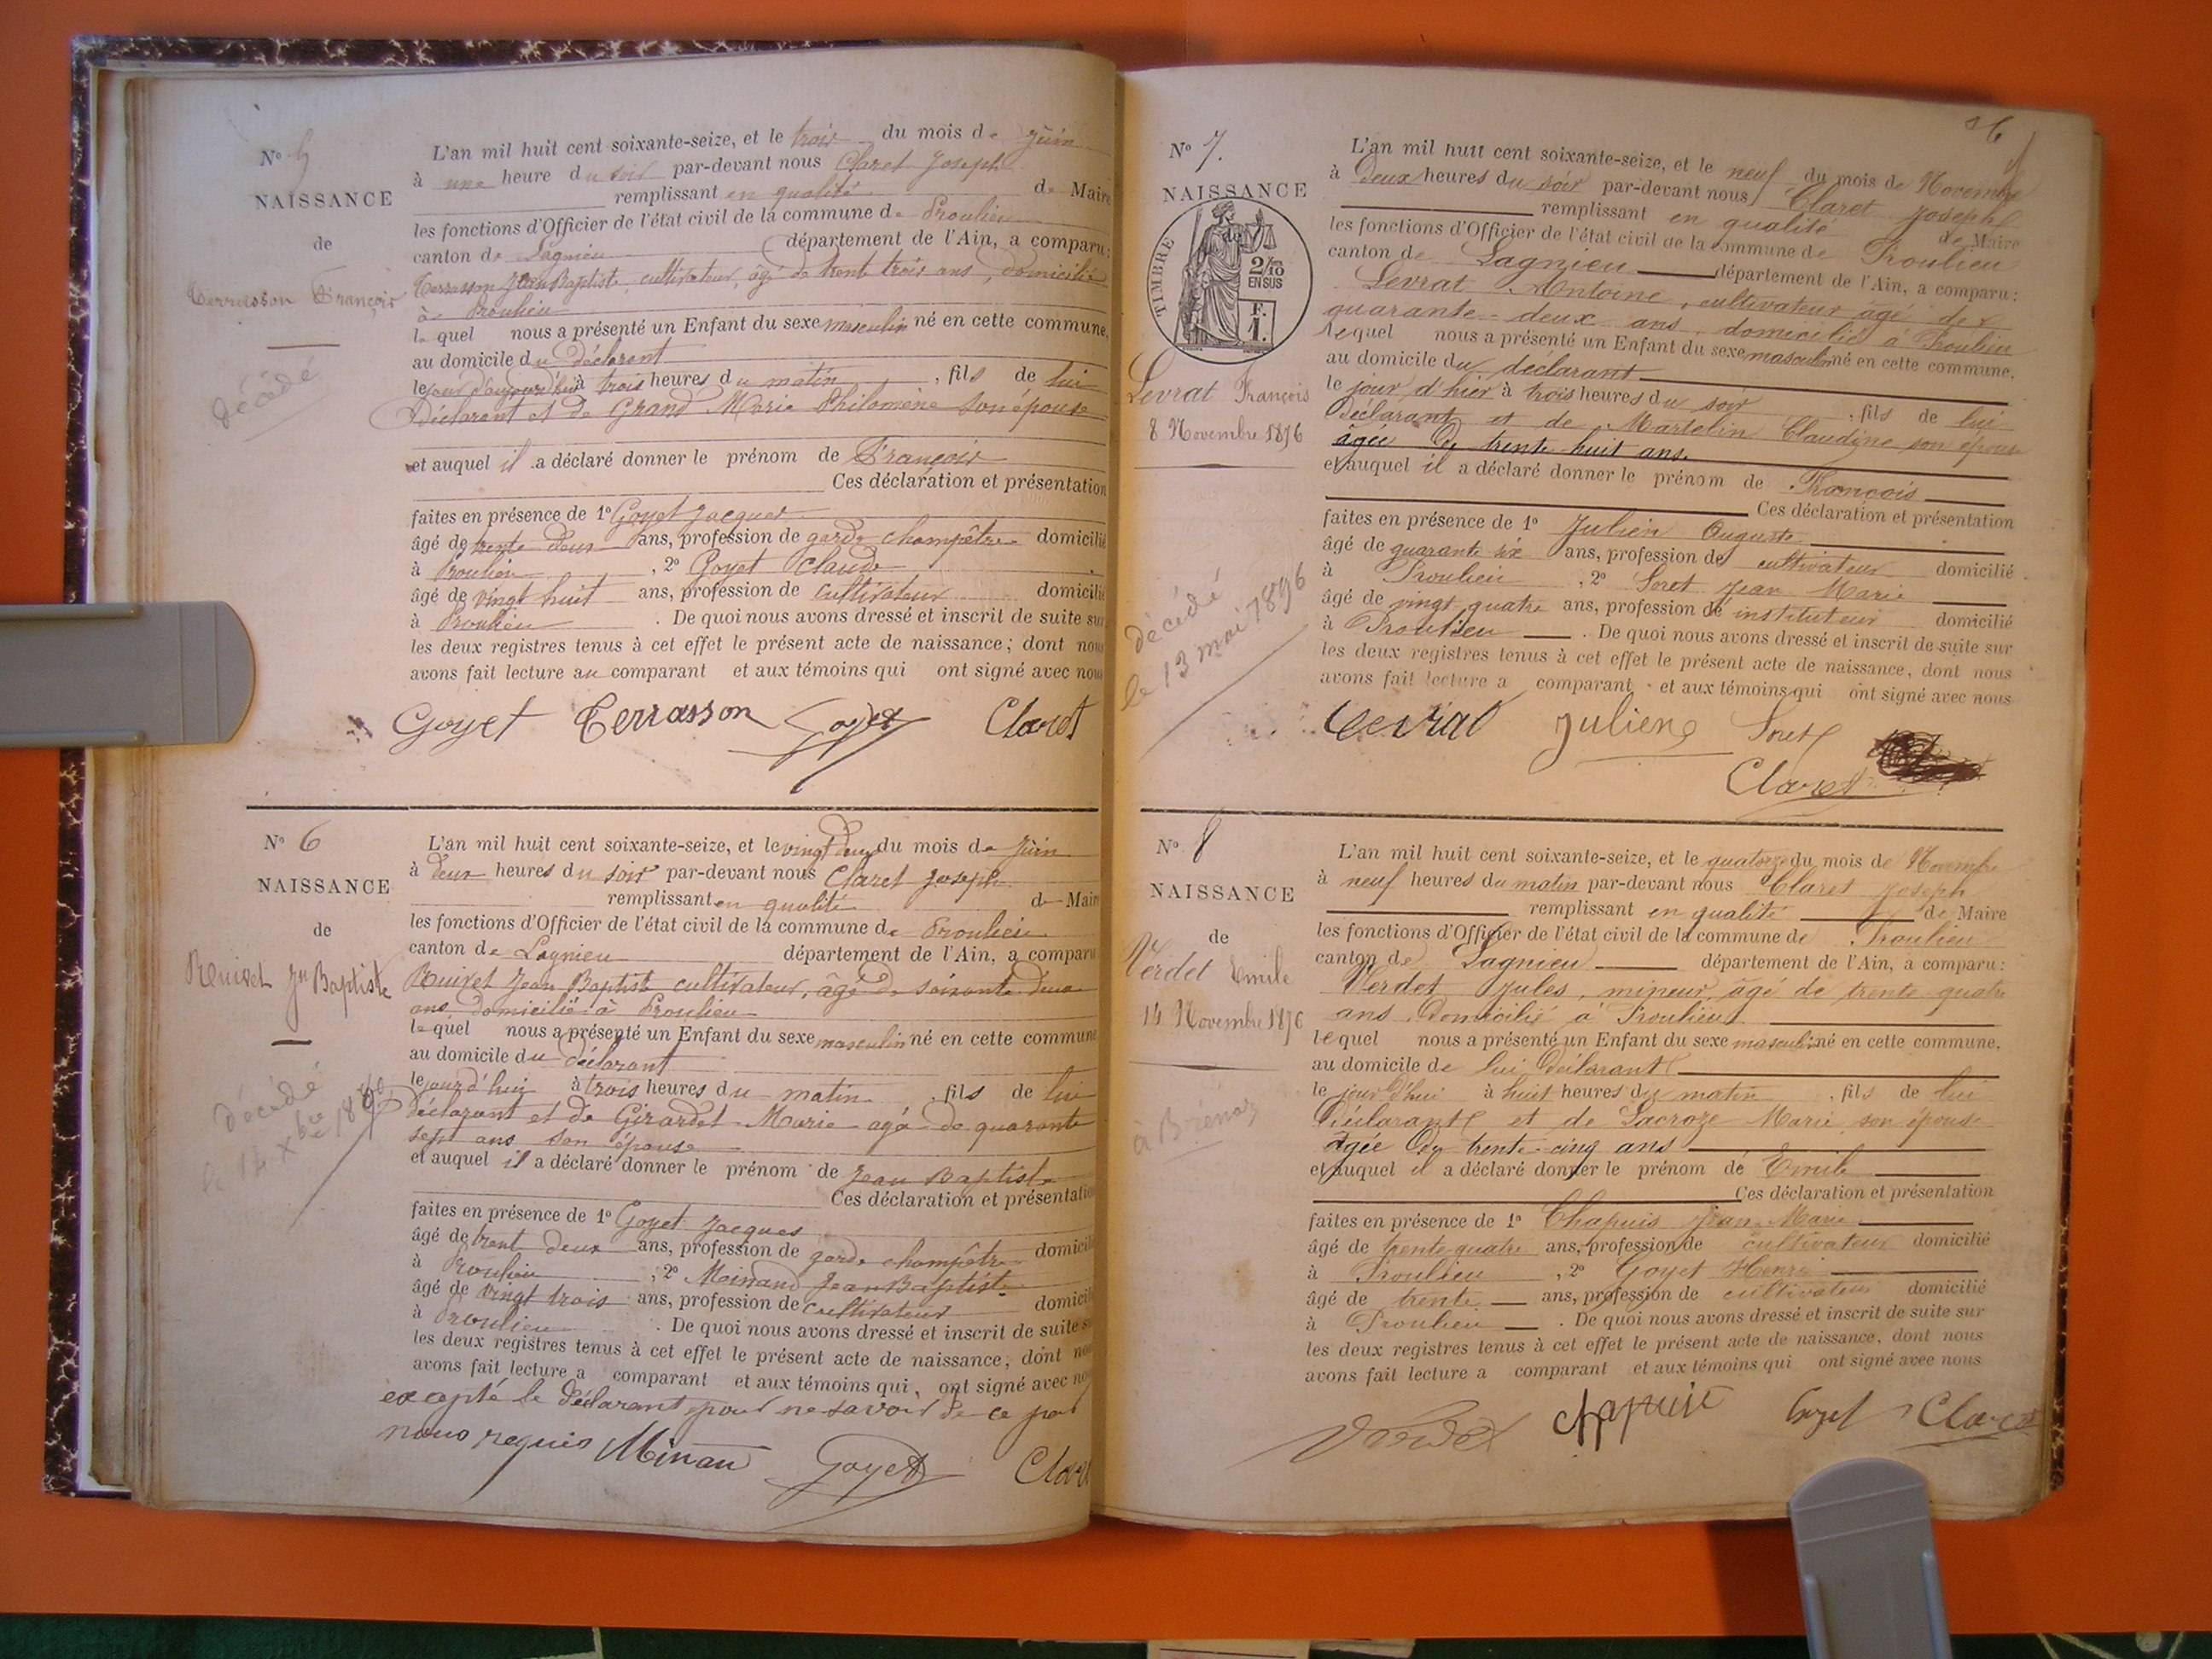 N° 5
NAISSANCE
de
Terrasson François
décédé
L'an mil huit cent soixante-seize, et le trois du mois de Juin
à une heure du soir par-devant nous Claret Joseph
remplissant en qualité de Maire
les fonctions d'Officier de l'état civil de la commune de Proulieu
canton de Lagnieu département de l'Ain, a comparu:
Terrasson Jean Baptiste, cultivateur, âgé de trent trois ans, domicilié
à Proulieu
lequel nous a présenté un Enfant du sexe masculin né en cette commune,
au domicile du déclarant
le jour d'aujourd'hui à trois heures du matin, fils de lui
Déclarant et de Grand Marie Philomène son épouse
et auquel il a déclaré donner le prénom de François
Ces déclaration et présentation
faites en présence de 1° Goyet Jacques
âgé de trente deux ans, profession de garde champêtre domicilié
à Proulieu, 2° Goyet Claude
âgé de vingt huit ans, profession de cultivateur domicilié
à Proulieu. De quoi nous avons dressé et inscrit de suite sur
les deux registres tenus à cet effet le présent acte de naissance; dont nous
avons fait lecture au comparant et aux témoins qui ont signé avec nous
Goyet Terrasson Goyet Claret
N° 6
NAISSANCE
de
Ruivet Jn Baptiste
décédé
le 14 Xbre
L'an mil huit cent soixante-seize, et le vingt deux du mois de Juin
à Deux heures du soir par-devant nous Claret Joseph
remplissant en qualité de Maire
les fonctions d'Officier de l'état civil de la commune de Proulieu
canton de Lagnieu département de l'Ain, a comparu
Ruivet Jean Baptiste cultivateur, âgé de soixante deux
ans domicilié à Proulieu
lequel nous a présenté un Enfant du sexe masculin né en cette commune
au domicile du déclarant
le jour d'hui à trois heures du matin, fils de lui
déclarant et de Girardet Marie agé de quarante
sept ans son épouse
et auquel il a déclaré donner le prénom de Jean Baptiste
Ces déclaration et présentation
faites en présence de 1° Goyet Jacques
âgé de trent deux ans, profession de garde champêtre domicilié
à Proulieu, 2° Moinand Jean Baptiste
âgé de vingt trois ans, profession de cultivateur domicilié
à Proulieu. De quoi nous avons dressé et inscrit de suite sur
les deux registres tenus à cet effet le présent acte de naissance; dont nous
avons fait lecture a comparant et aux témoins qui, ont signé avec nous
excepté le déclarant pour ne savoir de ce par
nous requis Minan Goyet Claret
26
N° 7.
NAISSANCE
de
TIMBRE
2/10
EN SUS
F.
1.
Levrat François
8 Novembre 1876
décédé
le 13 mai 1896
L'an mil huit cent soixante-seize, et le neuf du mois de Novembre
à Deux heures du soir par-devant nous Claret Joseph
remplissant en qualité de Maire
les fonctions d'Officier de l'état civil de la commune de Proulieu
canton de Lagnieu département de l'Ain, a comparu:
Levrat Antoine, cultivateur âgé de
quarante-deux ans, domicilié à Proulieu
lequel nous a présenté un Enfant du sexe masculin né en cette commune,
au domicile du déclarant
le jour d'hier à trois heures du soir, fils de lui
Déclarant et de Martelin Claudine son épouse
âgée de trente-huit ans.
et auquel il a déclaré donner le prénom de François
Ces déclaration et présentation
faites en présence de 1° Julien Auguste
âgé de quarante six ans, profession de cultivateur domicilié
à Proulieu, 2° Soret Jean Marie
âgé de vingt quatre ans, profession de instituteur domicilié
à Proulieu. De quoi nous avons dressé et inscrit de suite sur
les deux registres tenus à cet effet le présent acte de naissance, dont nous
avons fait lecture a comparant et aux témoins qui ont signé avec nous
Levrat Julien Soret
Claret
N° 8
NAISSANCE
de
Verdet Emile
14 Novembre 1876
à Brénaz
L'an mil huit cent soixante-seize, et le quatorze du mois de Novembre
à neuf heures du matin par-devant nous Claret Joseph
remplissant en qualité de Maire
les fonctions d'Officier de l'état civil de la commune de Proulieu
canton de Lagnieu département de l'Ain, a comparu:
Verdet Jules, mineur, âgé de trente quatre
ans, Domicilié à Proulieu
lequel nous a présenté un Enfant du sexe masculin né en cette commune,
au domicile de lui Déclarant
le jour d'hui à huit heures du matin, fils de lui
Déclarant et de Lacroze Marie son épouse
âgée de trente-cinq ans
et auquel il a déclaré donner le prénom de Emile
Ces déclaration et présentation
faites en présence de 1° Chapuis Jean Marie
âgé de trente-quatre ans, profession de cultivateur domicilié
à Proulieu, 2° Goyet Henri
âgé de trente ans, profession de cultivateur domicilié
à Proulieu. De quoi nous avons dressé et inscrit de suite sur
les deux registres tenus à cet effet le présent acte de naissance, dont nous
avons fait lecture a comparant et aux témoins qui ont signé avec nous
Verdet Chapuis Goyet Claret